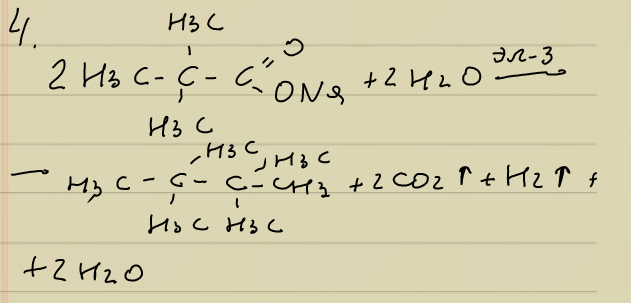 4.
H3C
2 H3C - C - C = O
ONa + 2 H2O эл-з →
H3C
→ H3C - C - C - CH3 + 2CO2 ↑ + H2 ↑ +
H3C H3C
H3C H3C
+ 2 H2O